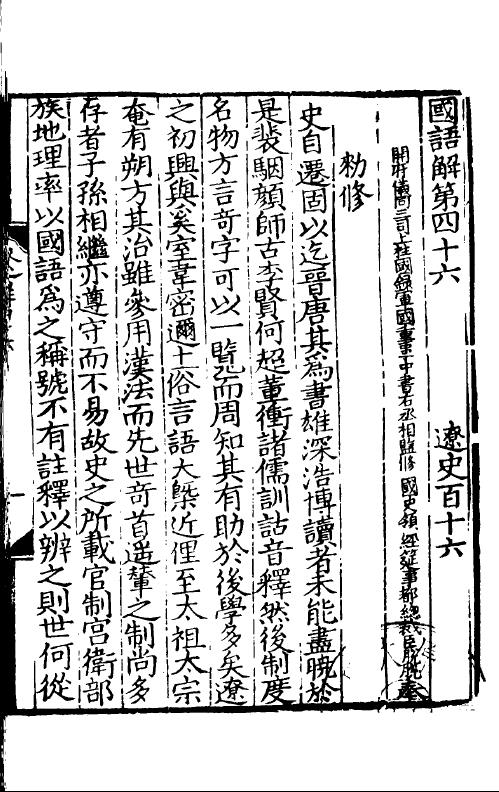 國語解第四十六　遼史百十六
開府儀同三司上柱國錄軍國重事中書右丞相監修國史領經筵事都總裁臣脫脫奉
勑修
史自遷固以迄晉唐其爲書雄深浩博讀者未能盡曉於
是裴駰顏師古李賢何超董衝諸儒訓詁音釋然後制度
名物方言奇字可以一覽而周知其有助於後學多矣遼
之初興與奚室韋密邇土俗言語大槩近俚至太祖太宗
奄有朔方其治雖參用漢法而先世奇首遥輦之制尚多
存者子孫相繼亦遵守而不易故史之所載官制宫衛部
族地理率以國語爲之稱號不有註釋以辨之則世何從